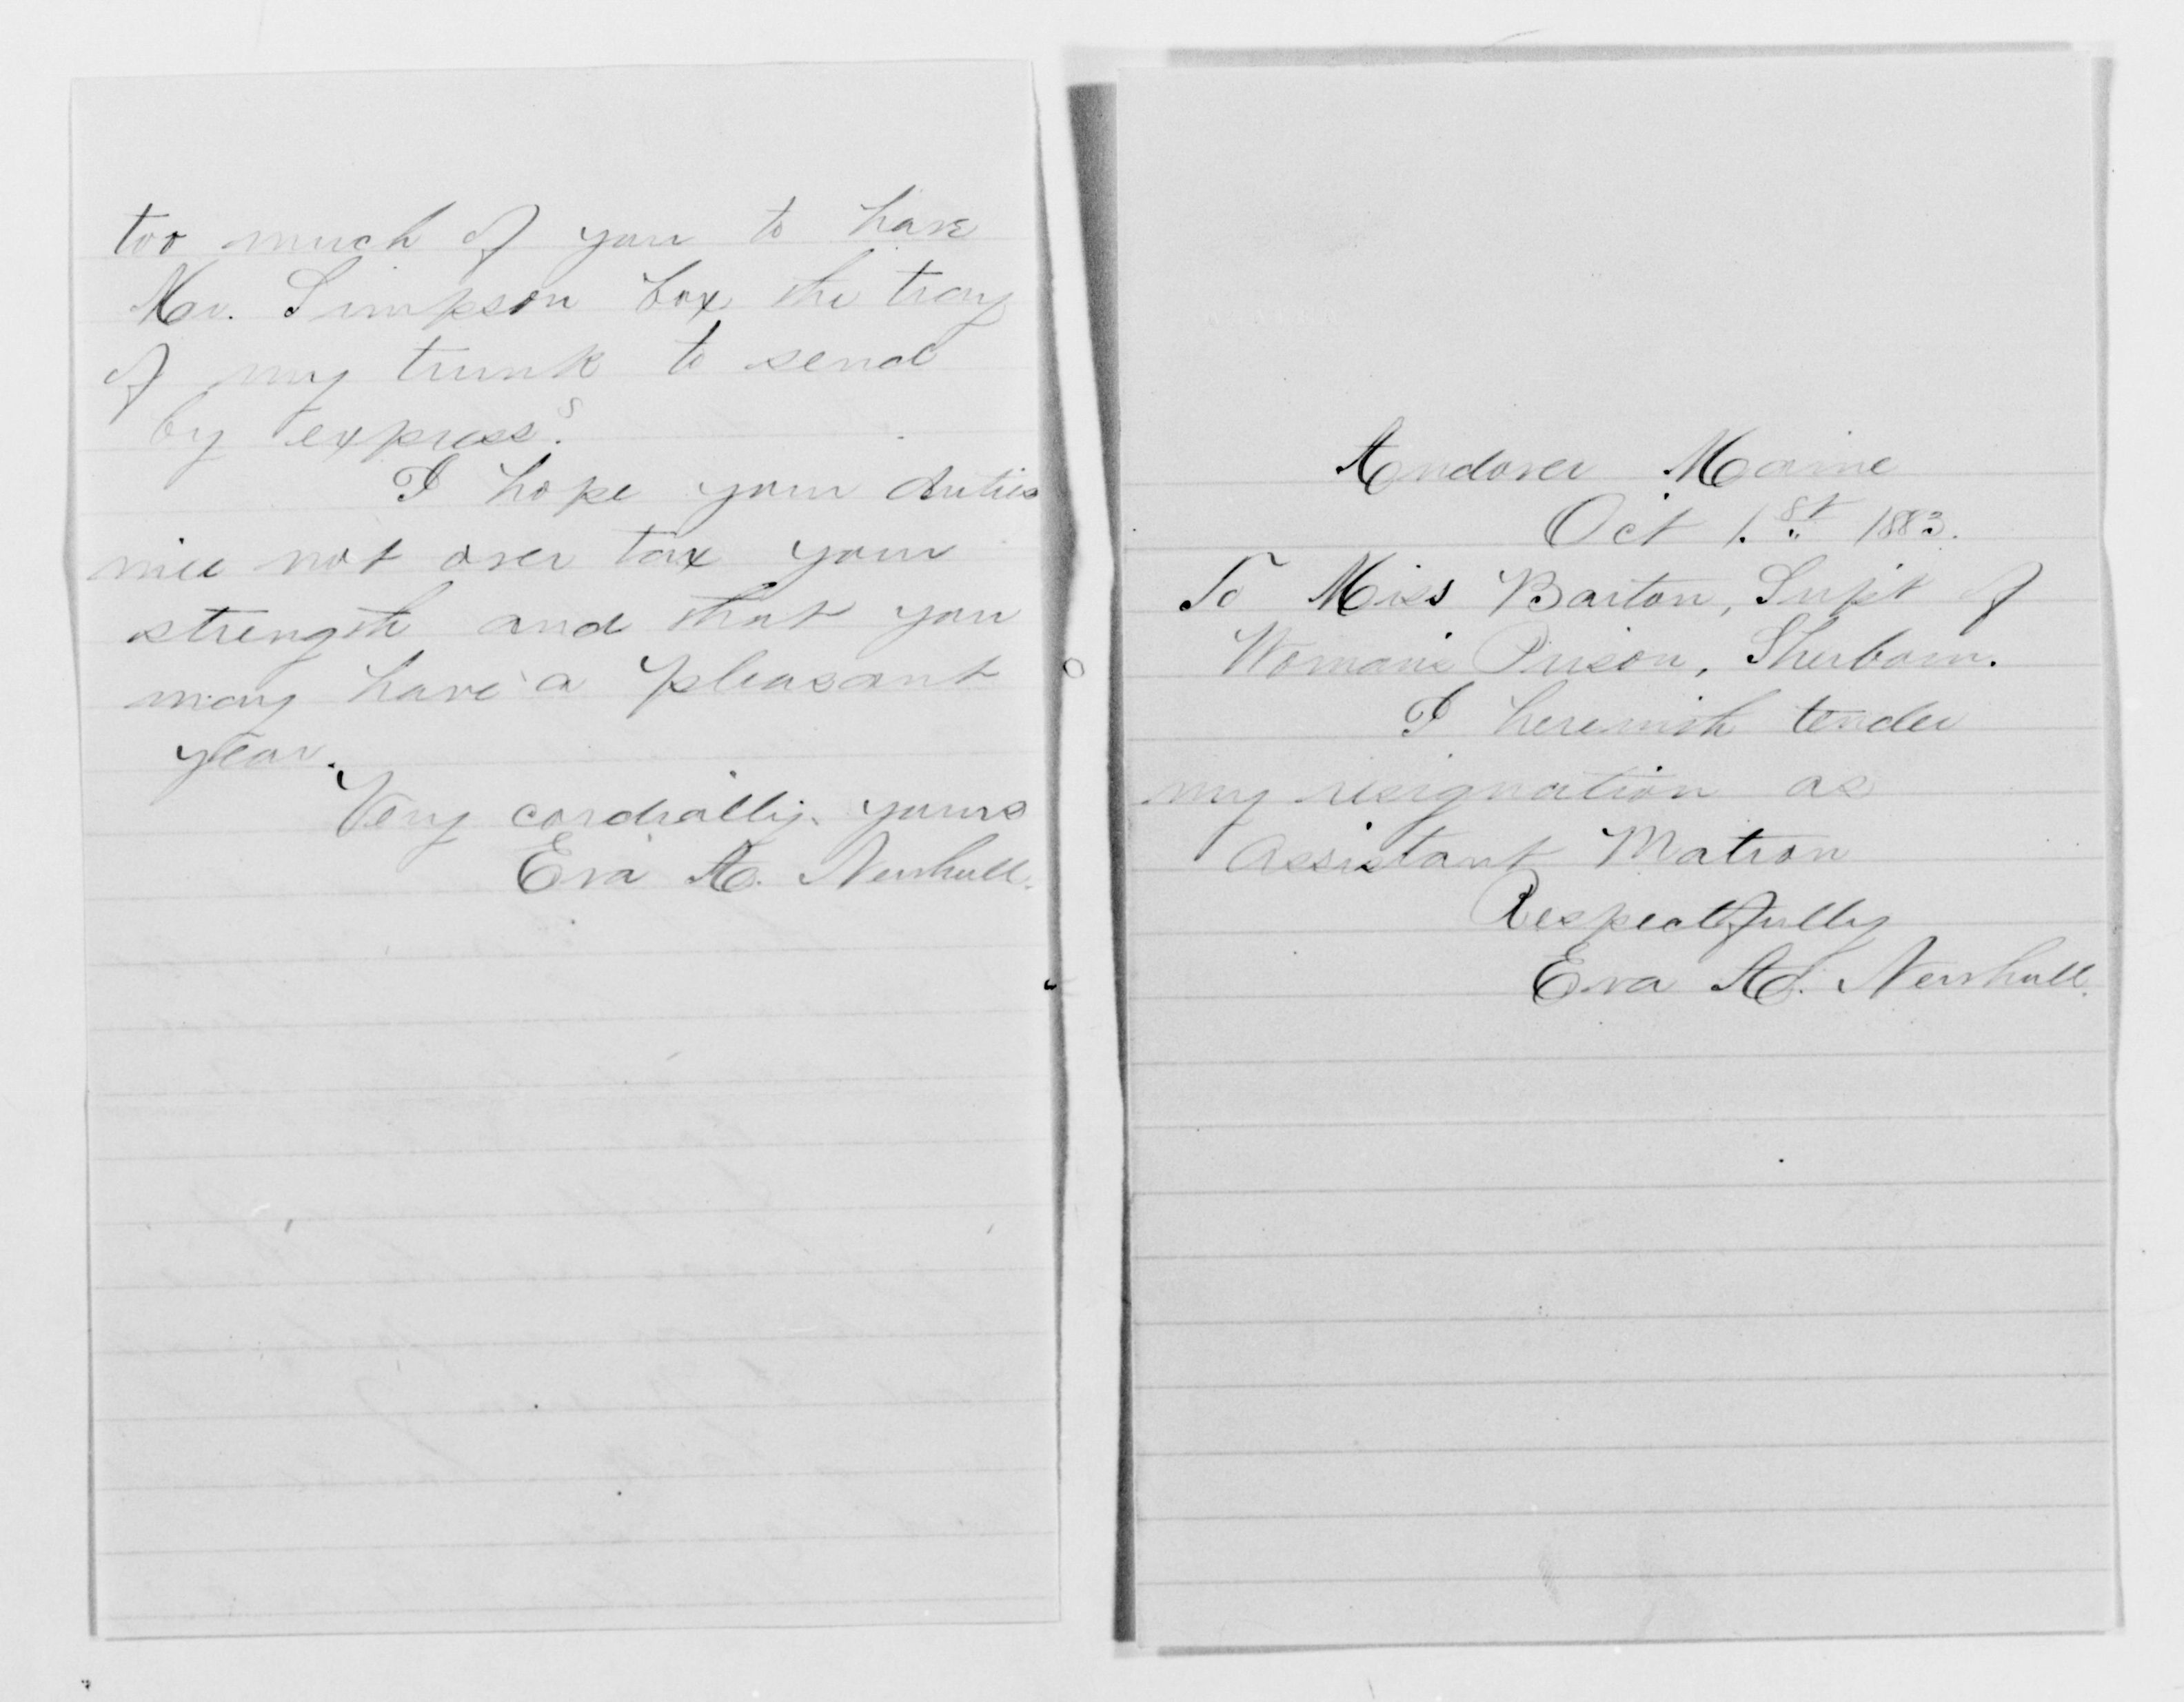 too much of you to have
Mr. Simpson box the tray
of my trunk to send
by express?
I hope your duties
will not over tax your
strength and that you
may have a pleasant
year.
Very cordially yours
Eva A. Newhall.
Andover Maine
Oct 1.st 1883.
To Miss Barton, Supt of
Woman's Prison, Sherborn.
I herewith tender
my resignation as
Assistant Matron
Respectfully
Eva A. Newhall.